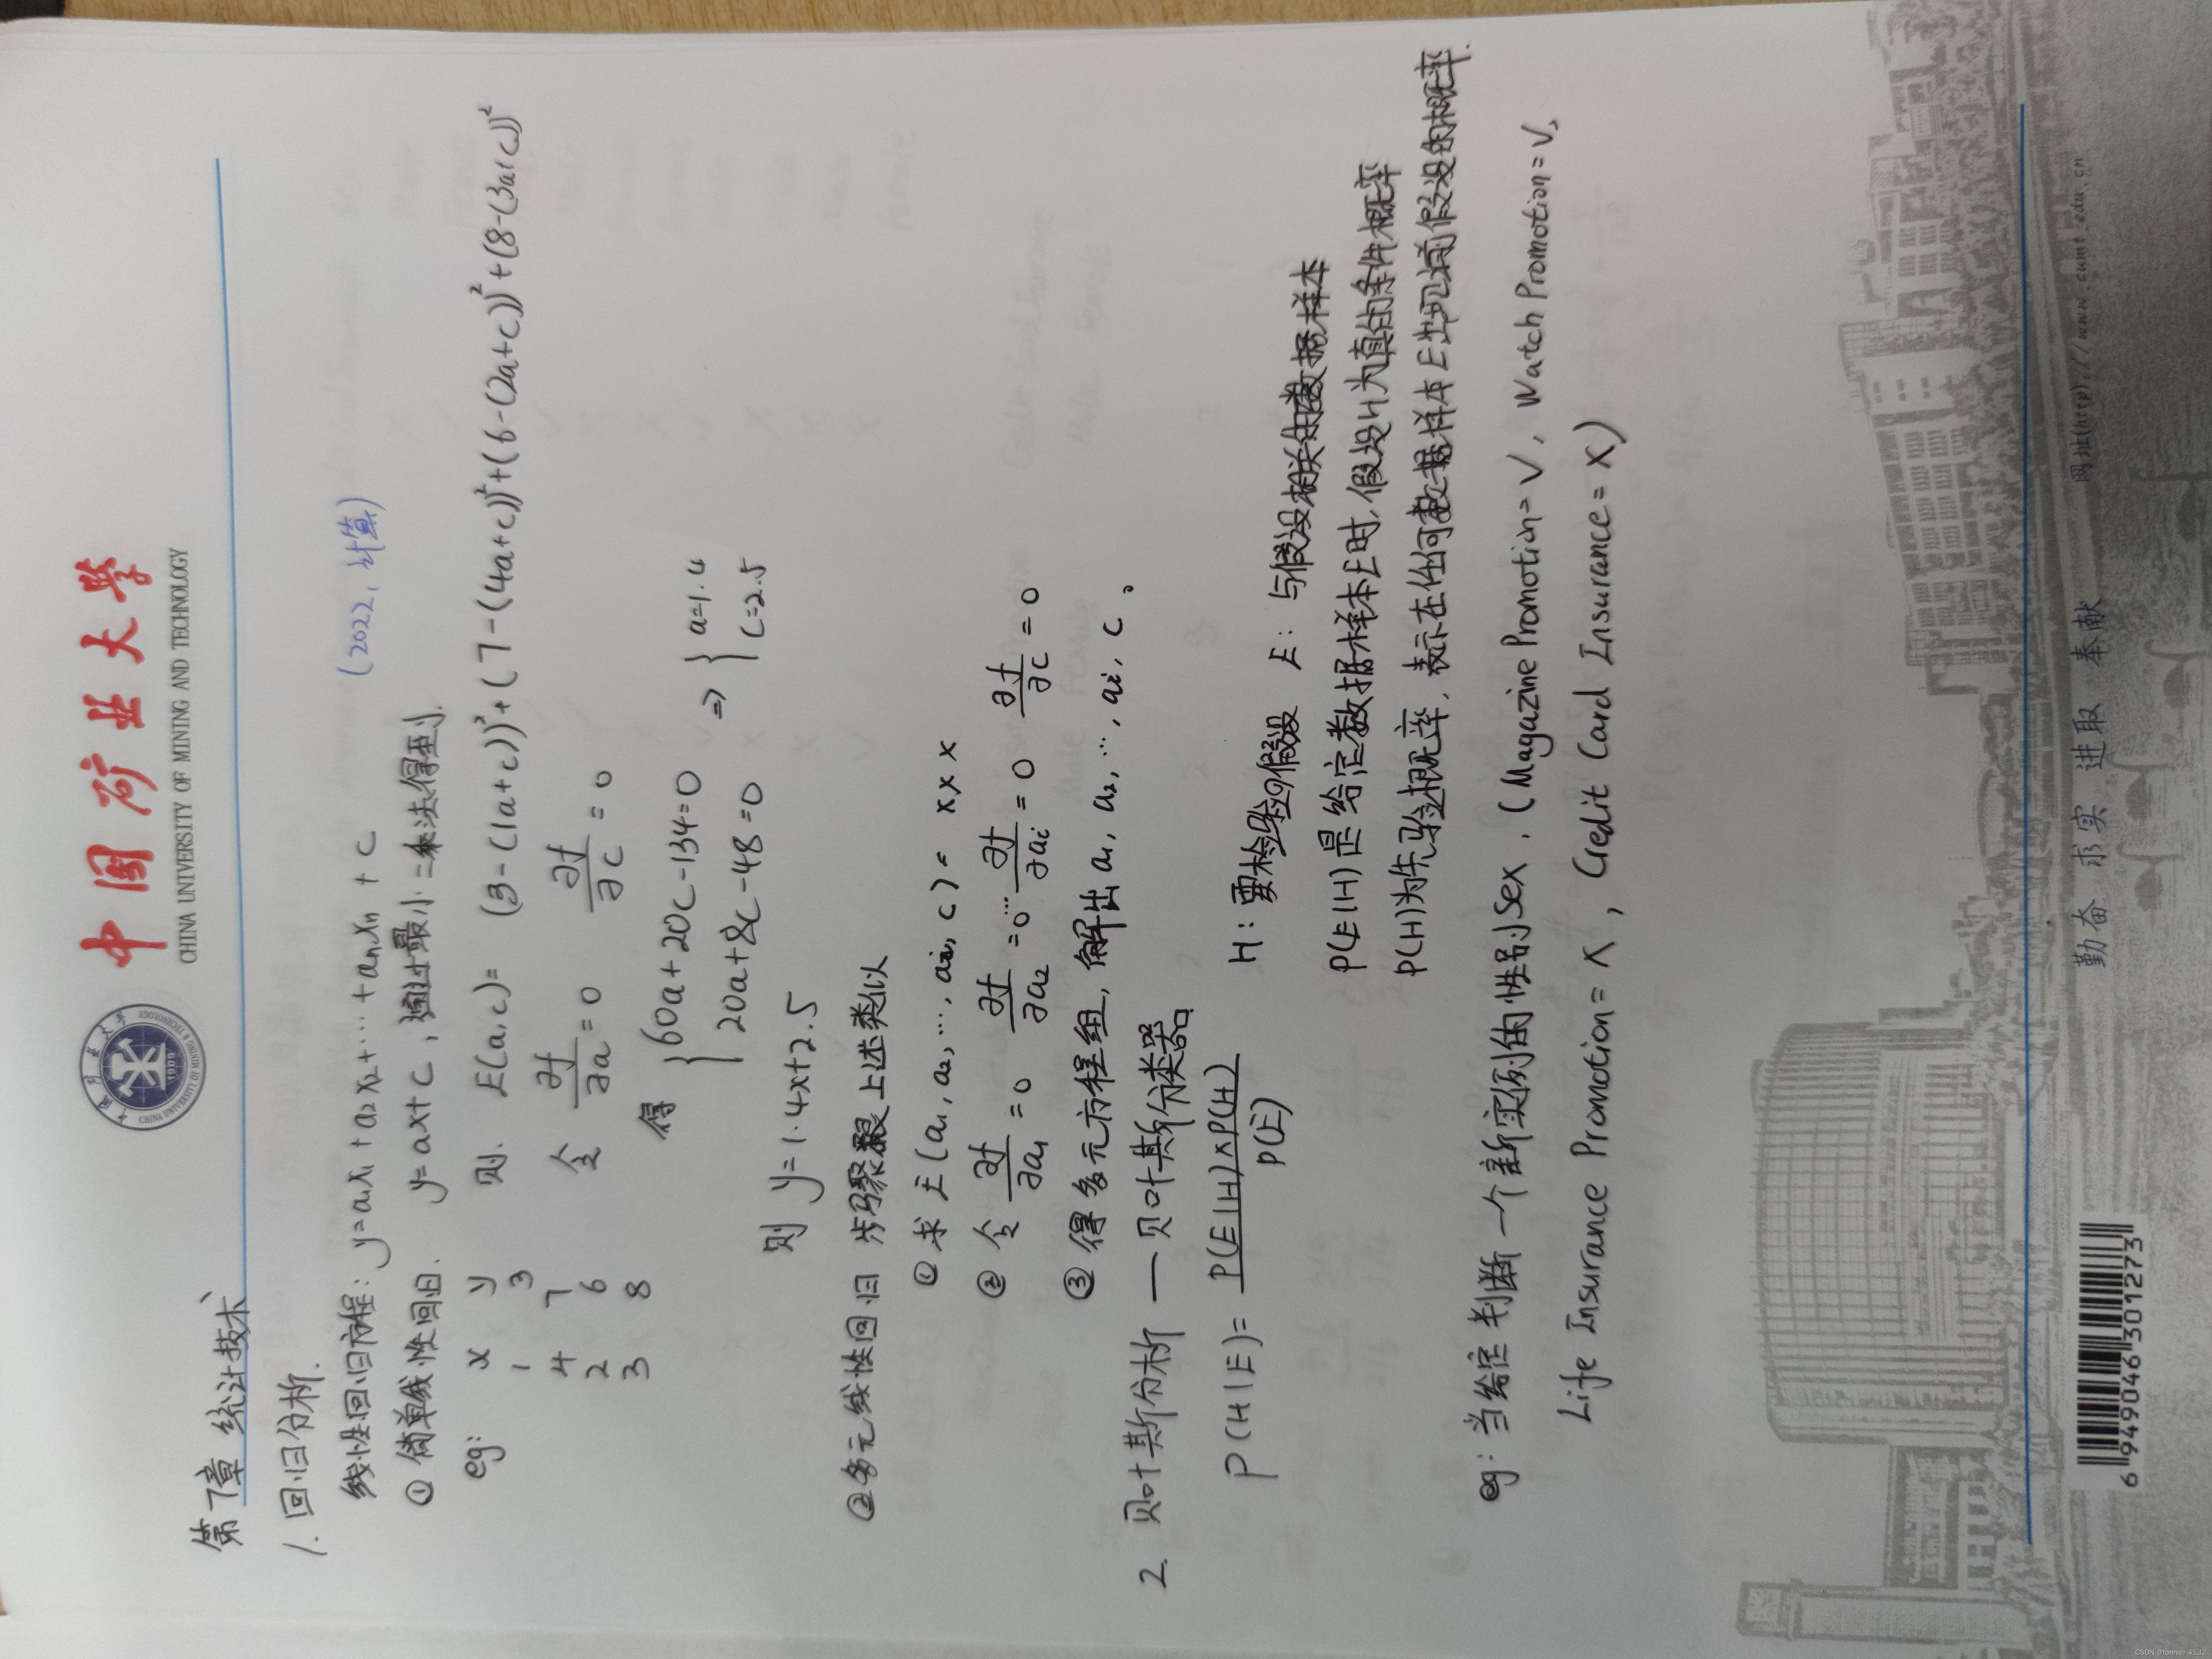 中国矿业大学
CHINA UNIVERSITY OF MINING AND TECHNOLOGY
第7章 统计技术
1. 回归分析.
线性回归方程: y=a₁x₁+a₂x₂+…+aₙxₙ+c (2022, 计算)
① 简单线性回归. y=ax+c, 通过最小二乘法得到.
eg: x y 则. E(a,c)= (3-(1a+c))²+(7-(4a+c))²+(6-(2a+c))²+(8-(3a+c))²
1 3
4 7 令 ∂f/∂a=0 ∂f/∂c=0
2 6
3 8 得 {60a+20c-134=0 ⇒ {a=1.4
20a+8c-48=0 c=2.5
则 y=1.4x+2.5
②多元线性回归 步骤跟上述类似
① 求 E(a₁,a₂,…,aᵢ,c)= xxx
② 令 ∂f/∂a₁=0 ∂f/∂a₂=0 … ∂f/∂aᵢ=0 ∂f/∂c=0
③ 得多元方程组, 解出 a₁, a₂, …, aᵢ, c。
2. 贝叶斯分析 — 贝叶斯分类器
P(H|E)= P(E|H)×P(H)/P(E) H: 要检验的假设 E: 与假设相关的数据样本
P(E|H)是给定数据样本E时,假设H为真的条件概率
P(H)为先验概率, 表示在任何数据样本E出现前假设的概率.
eg: 当给定判断一个新实例的性别Sex, (Magazine Promotion=√, Watch Promotion=√,
Life Insurance Promotion=X, Credit Card Insurance=X)
勤奋 求实 进取 奉献
网址(http)://www.cumt.edu.cn
6 949046 301273
CSDN @forever 4132